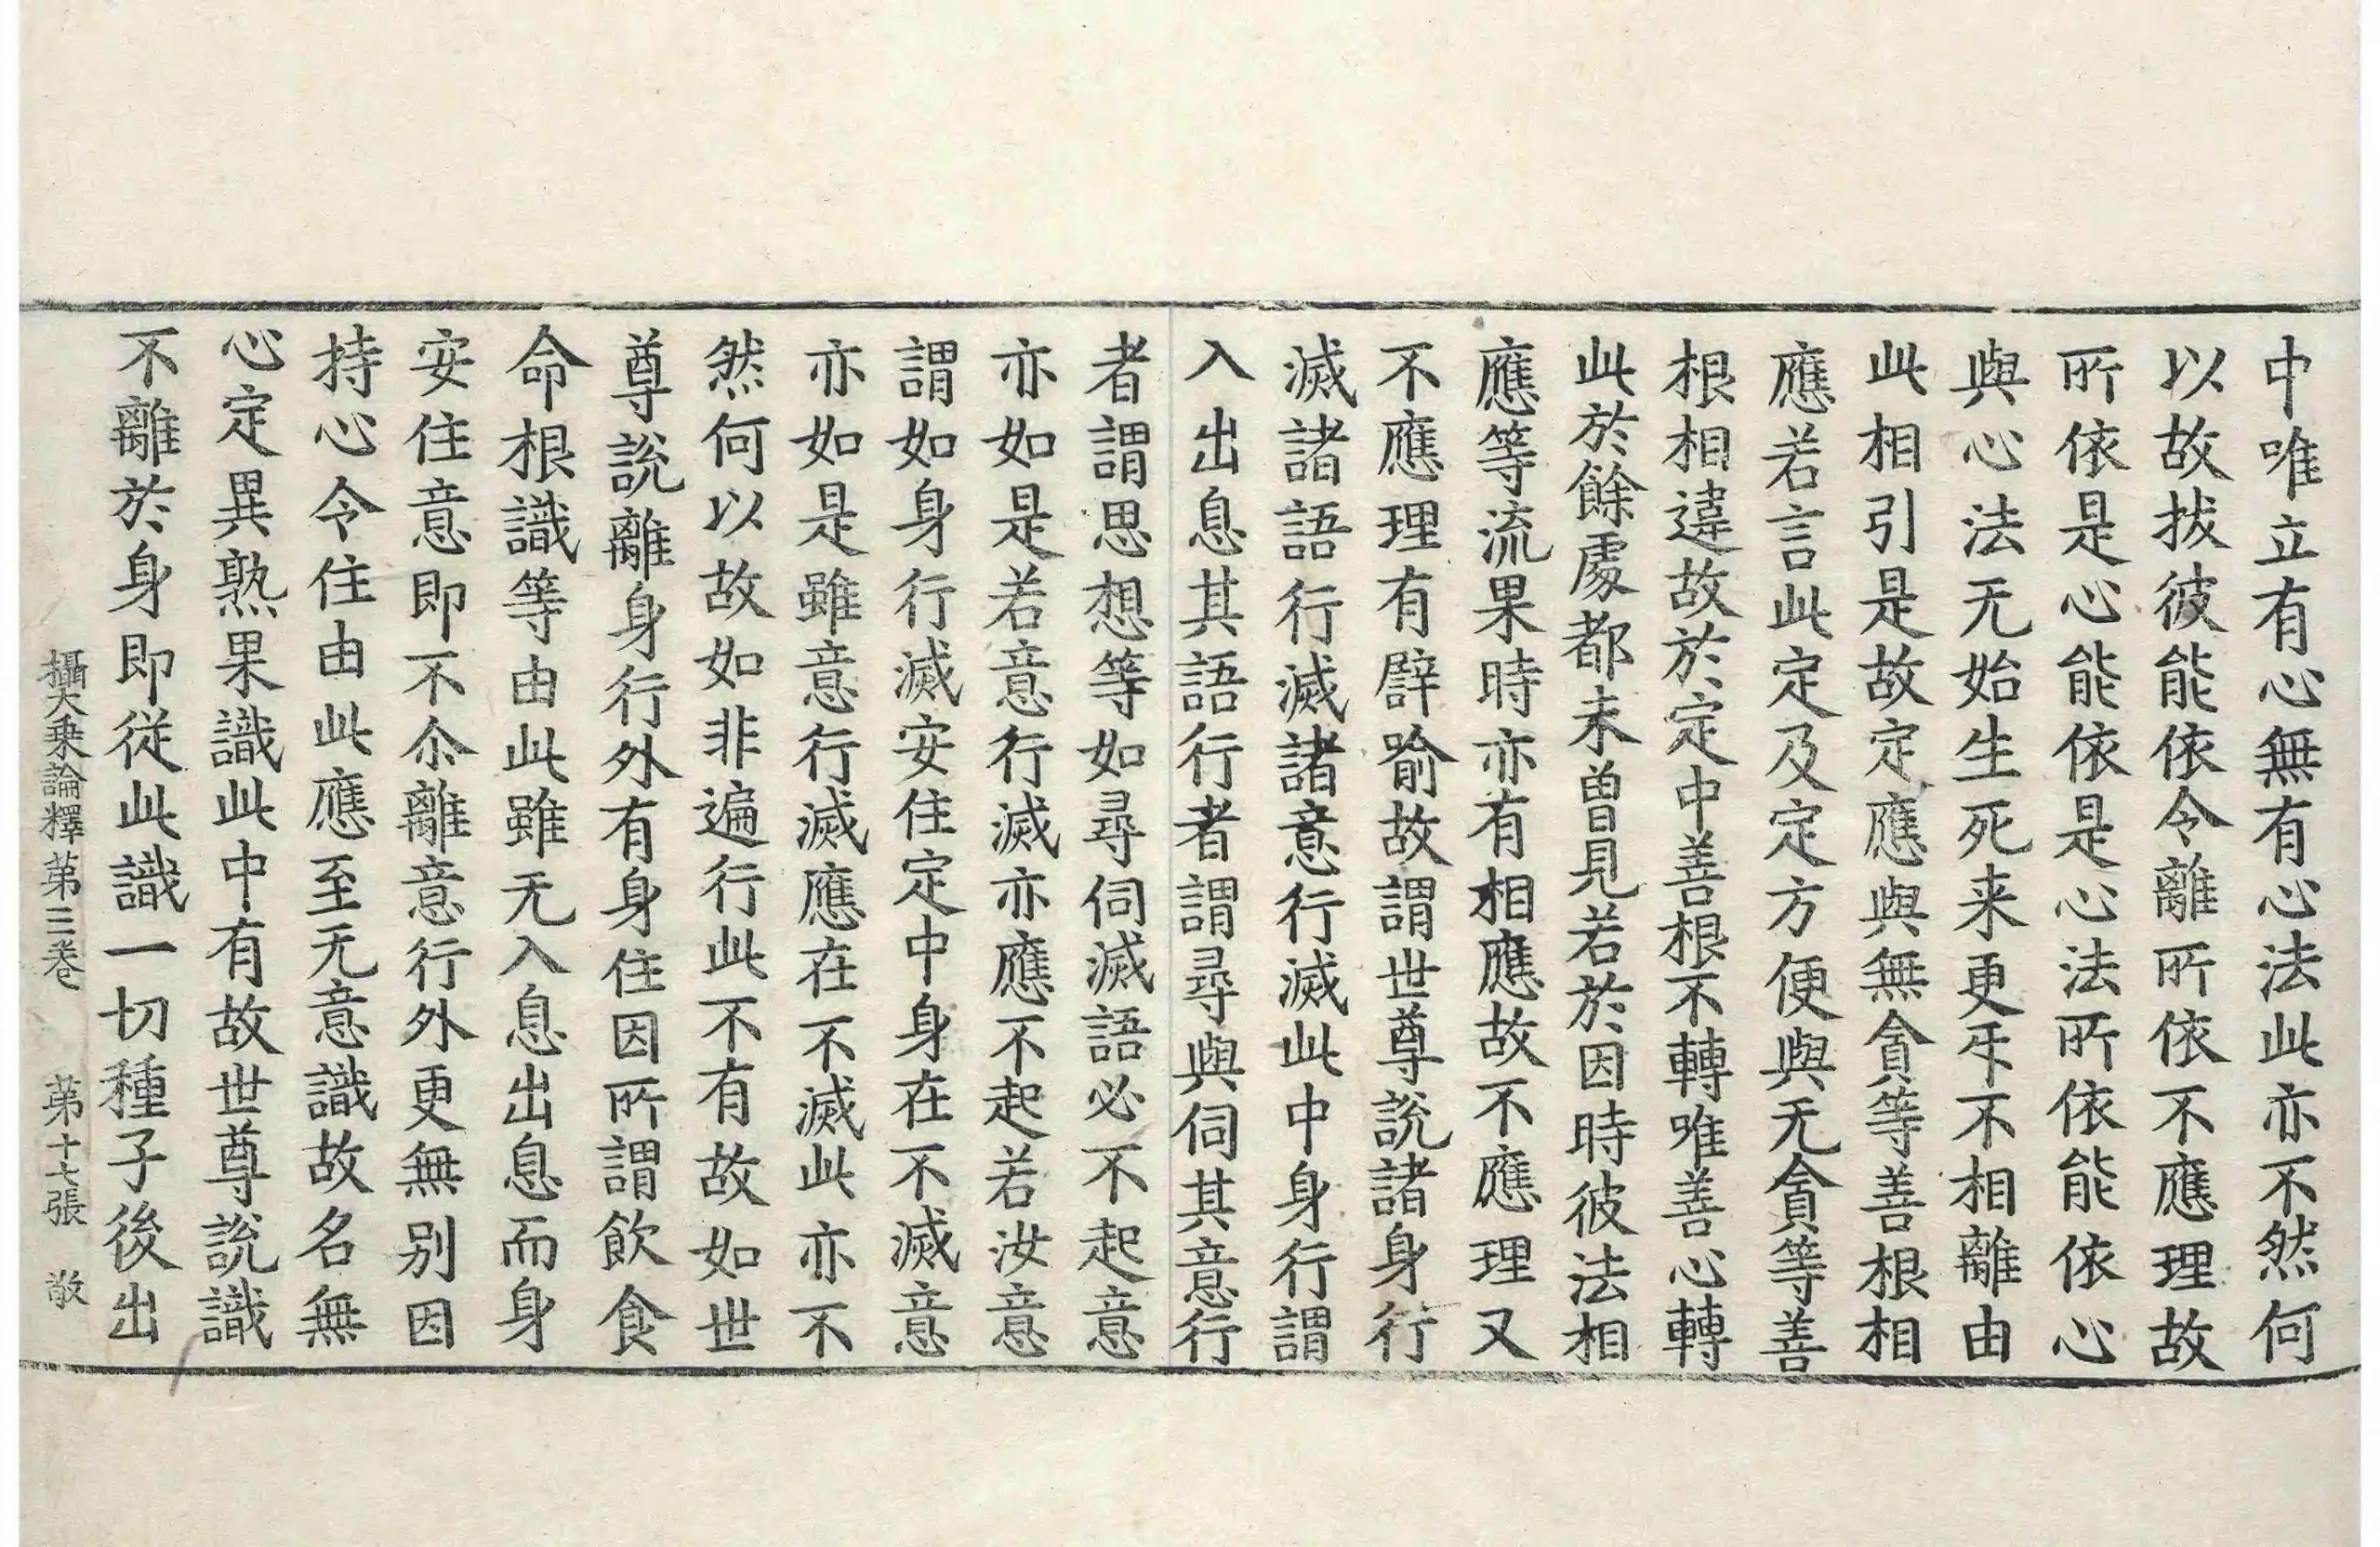 中唯立有心無有心法此亦不然何
以故拔彼能依令離所依不應理故
所依是心能依是心法所依能依心
與心法无始生死来更㸦不相離由
此相引是故定應與無貪等善根相
應若言此定及定方便與无貪等善
根相違故於定中善根不轉唯善心轉
此於餘處都未曽見若於因時彼法相
應等流果時亦有相應故不應理又
不應理有辟喻故謂世尊說諸身行
滅諸語行滅諸意行滅此中身行謂
入出息其語行者謂尋與伺其意行
者謂思想等如尋伺滅語必不起意
亦如是若意行滅亦應不起若汝意
謂如身行滅安住定中身在不滅意
亦如是雖意行滅應在不滅此亦不
然何以故如非遍行此不有故如世
尊說離身行外有身住因所謂飲食
命根識等由此雖无入息出息而身
安住意即不尒離意行外更無別因
持心令住由此應至无意識故名無
心定異熟果識此中有故世尊說識
不離於身即從此識一切種子後出
攝大乗論釋第三卷 第十七張 敬